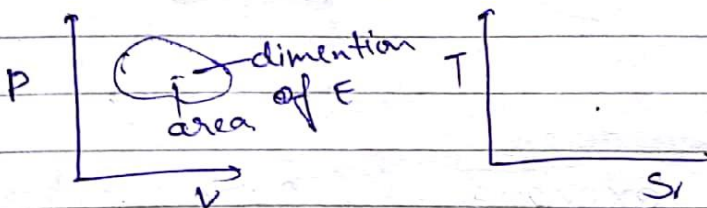 P
dimention
of E
area
V
T
S